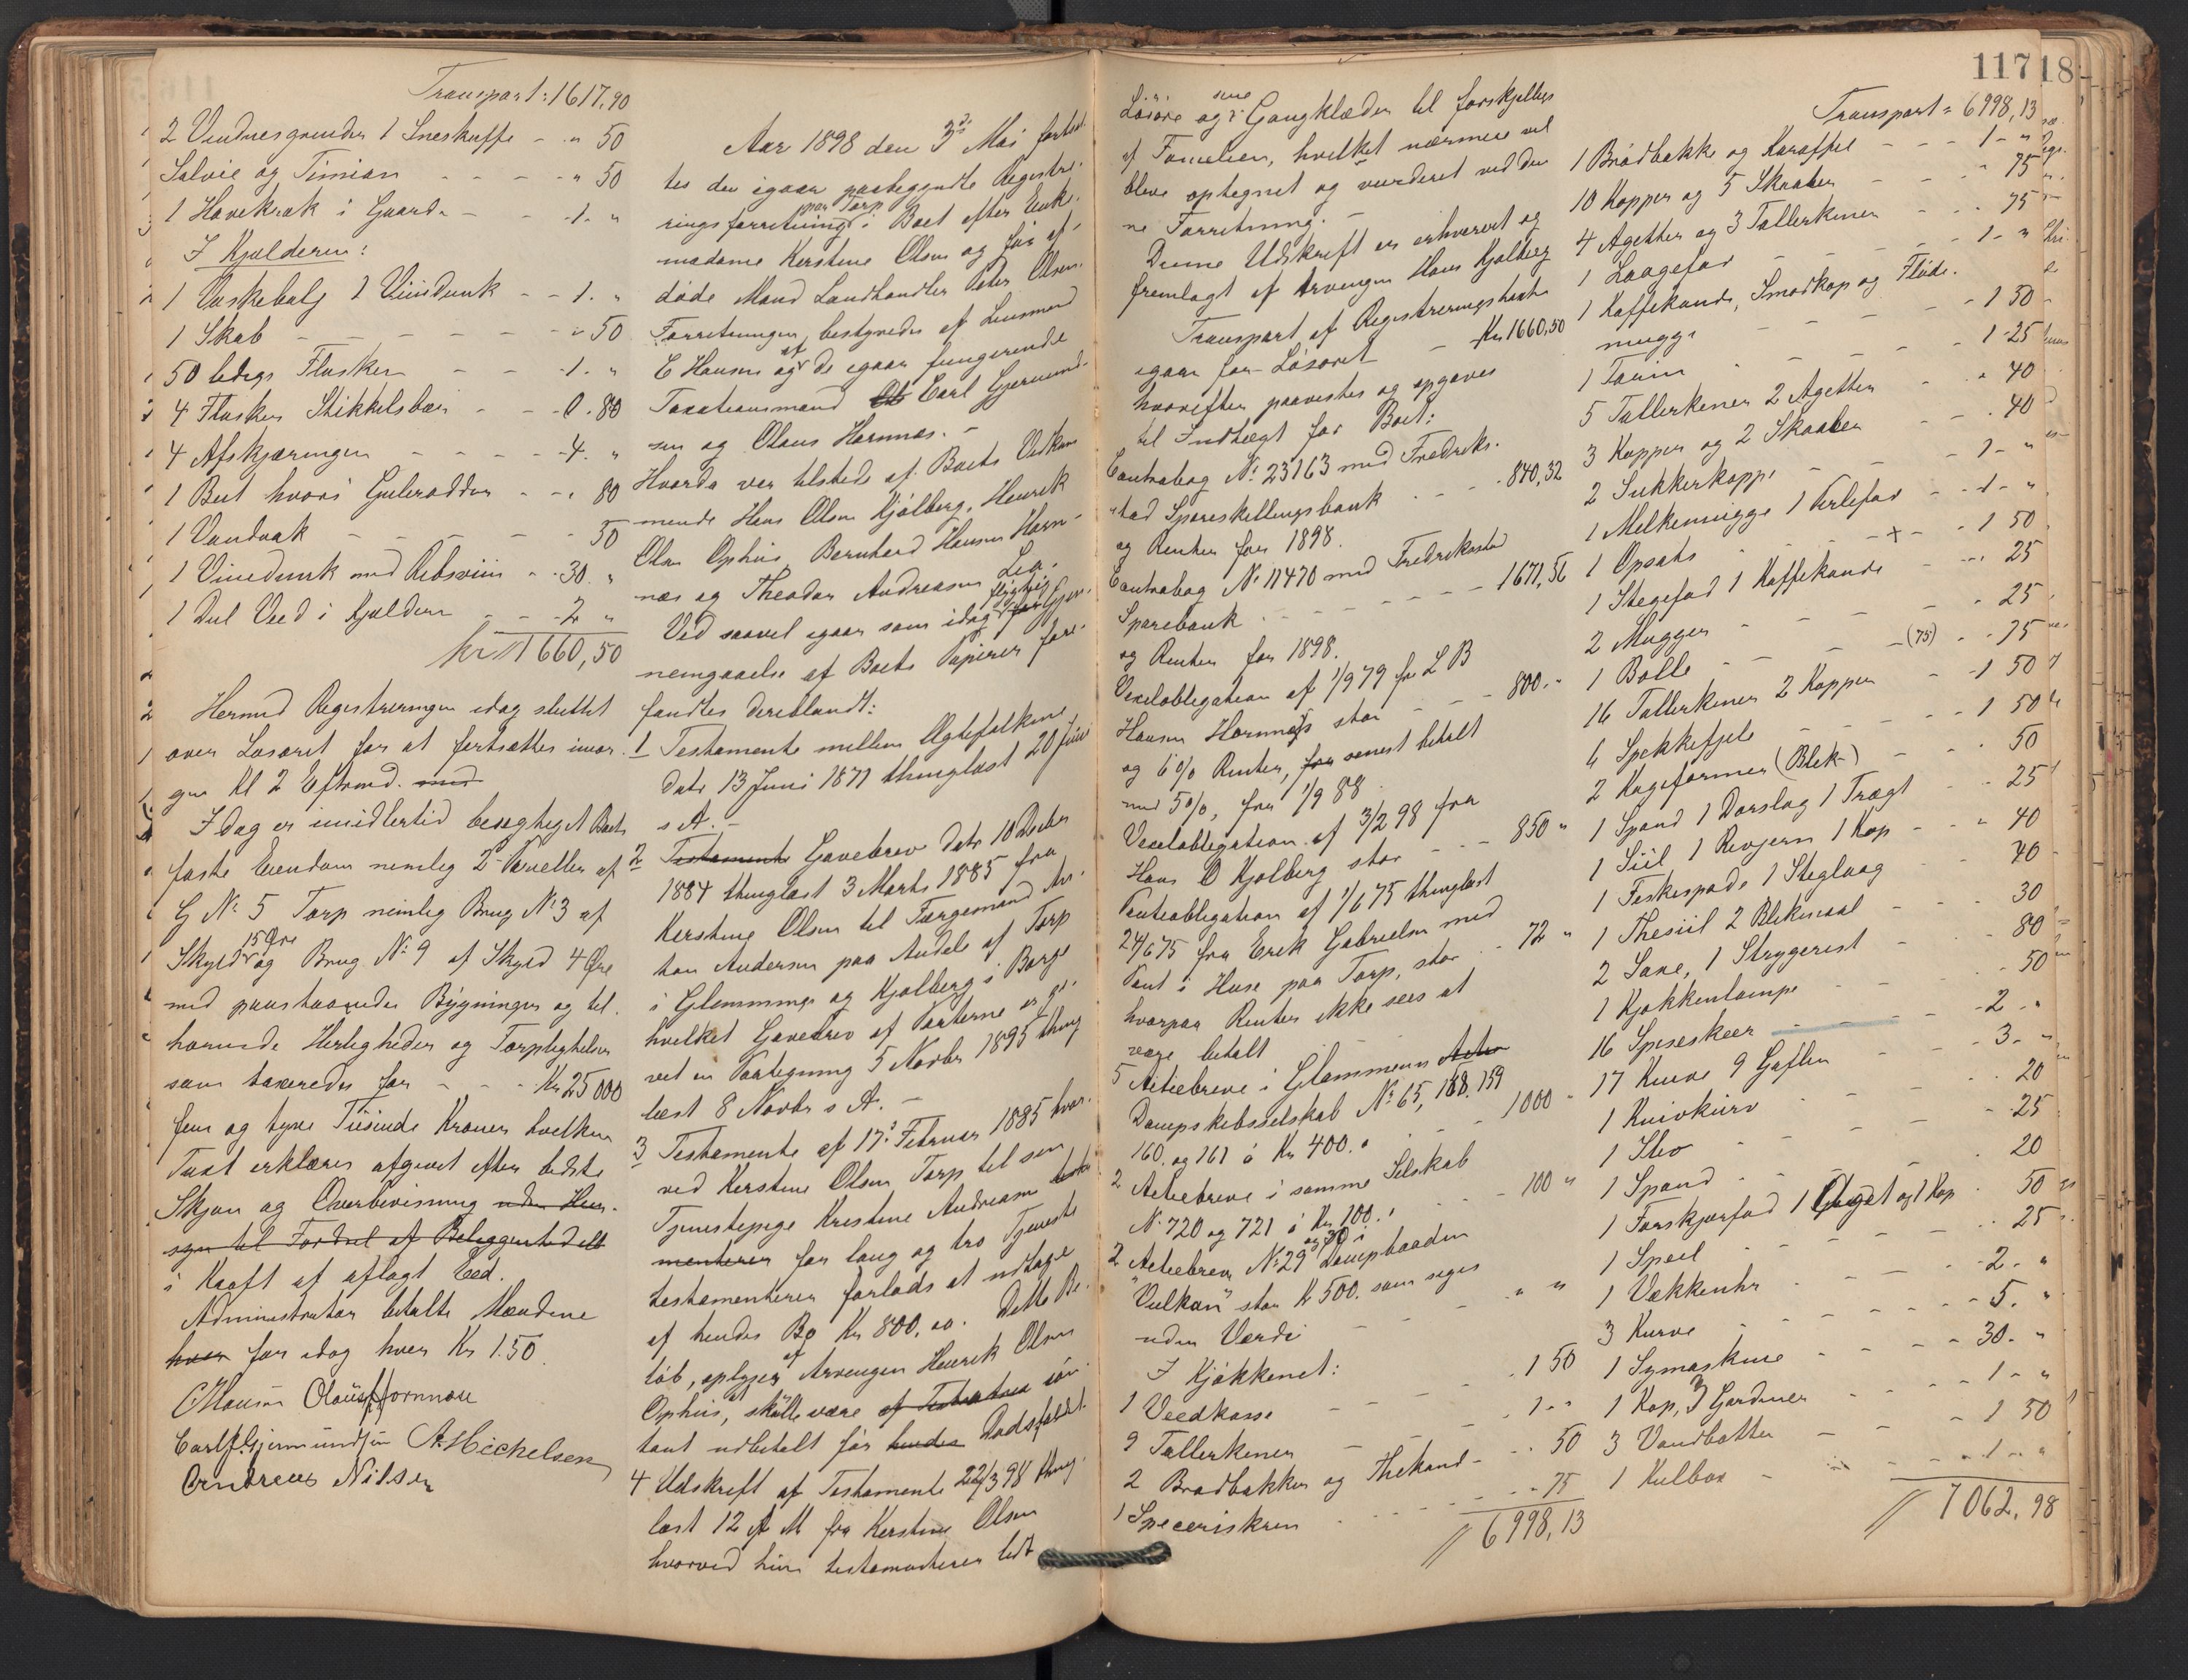 Transport: 1617,90
2 Vinduesgrinder 1 Sneskuffe - " 50
Salvie og Timian - - - - " 50
1 Havekrak i Gaarden - - 1. "
I Kjælderen:
1 Vaskebalg 1 Viindunk - - 1. "
1 Skab - - - - - - " 50
50 ledige Flasker - - - 1. "
4 Flasker Stikkelsbær - - 0.80
4 Afskjæringer - - - - 4. "
1 Beet hvori Gulerødder - - " 80
1 Vandvak - - - - - 50
1 Vinedunk med Ribsviin - - 30. "
1 Del Ved i Kjælderen - - 2 "
kr 1660,50
Hermed Registreringen idag sluttet
over Løsøret for at fortsættes imor-
gen Kl 2 Eftmd. med
I dag er imidlertid besigtiget Boets
faste Eiendom nemlig 2 Parceller af
G No 5 Torp nemlig Brug No 3 af
Skyld 15 Øre og Brug No 9 af Skyld 4 Øre
med paastaaende Bygninger og til-
hørende Herligheder og Forpligtelser
som taxeredes for - - - Kr 25000
fem og tyve Tusinde Kroner hvilken
Taxt erklæres afgivet efter bedste
Skjøn og Overbevisning uden Hen-
syn til Fordeel af Beliggenhed alt
i Kraft af aflagt Eed.
Administrator betalte Mændene
hver for idag hver Kr 1.50.
CHansen Olaus Hornnæs
Carl J. Gjermundsen A. Michelsen
Andreas Nilsen
Aar 1898 den 3die Mai fortsat-
tes den igaar paabegyndte Registre-
ringsforretning paa Torp i Boet efter Enke-
madame Kerstine Olsen og før af-
døde Mand Landhandler Peter Olsen.
Forretningen bestyredes af Lensmand
C Hansen og af de igaar fungerende
Taxationsmænd Ol Carl Gjermund-
sen og Olaus Hornnæs. -
Hvorda var tilstede af Boets Vedkom-
mende Hans Olsen Kjølberg, Henrik
Olsen Ophus, Bernhard Hansen Horn-
næs og Theodor Andreasen Lea.
Ved saavel igaar som idag flygtig Gjen-
nemgaaelse af Boets Papirer fore-
fandtes deriblandt:
1 Testamente mellem Ægtefolkene
datr 13 Juni 1871 thinglæst 20 Juni
s A. -
2 Testamente Gavebrev datr 10 Decbr
1884 thinglæst 3 Marts 1885 fra
Kerstine Olsen til Færgemand An-
ton Andersen paa Andele af Torp
i Glemminge og Kjølberg i Borge
hvilket Gavebrev af Parterne er gi-
vet en Paategning 5 Novbr 1895 thing-
læst 8 Novbr s A. -
3 Testamente af 17de Februar 1885 hvor-
ved Kerstine Olsen Torp til sin
Tjenestepige Kristine Andreasen testa
menterer for lang og tro Tjeneste
testamenterer forlods at udtage
af hendes Bo Kr 800,00. Dette Be-
løb, oplyses af Arvengen Henrik Olsen
Ophus, skulle være af Testatrix kon-
tant udbetalt før hendes Dødsfaldet.
4 Udskrift af Testamente 22/3 98 thing-
læst 12 A M fra Kerstine Olsen
hvorved hun testamenterer lidt
117 18
Løsøre og sine Gangklæder til forskjellige
af Familien, hvilket nærmere vil
blive optegnet og vurderet ved den-
ne Forretning. -
Denne Udskrift er erhvervet og
fremlagt af Arvengen Hans Kjølberg
Transport af Registreringsforretn
igaar for Løsøret - Kr 1660,50
hvorefter paavistes og opgaves
til Indtægt for Boet:
Contrabog No 23163 med Fredrik-
stad Spareskillingsbank - - - 840,32
og Renter for 1898.
Contrabog No 11470 med Fredrikstad
Sparebank - - - - - - 1671,56
og Renter for 1898.
Vexelobligation af 1/9 79 fra L B
Hansen Hornnæs stor - - - 800. "
og 6 % Renter, fra senest betalt
med 5 %, fra 1/9 88.
Vexelobligation af 3/2 98 fra
Hans O Kjølberg stor - - - 850 "
Panteobligation af 1/6 75 thinglæst
24/6 75 fra Erik Gabrielsen med
Pant i Huse paa Torp, stor - 72 "
hvorpaa Renter ikke sees at
være betalt
5 Actiebreve i Glommens Actie
Dampskibsselskab No 65, 158, 159
160 og 161 á Kr 400. " - - 1000 "
2 Actiebreve i samme Selskab
No 720 og 721 á Kr 100. " - - 100 "
2 Actiebrev No 29 og 30 i Dampbaaden
"Vulkan" stor Kr 500. som siges
uden Værdi - - - - " "
I Kjøkkenet:
1 Veedkasse - - - - 1 50
9 Tallerkener - - - - 1 "
2 Brødbakker og Thekand - - 50
1 Speceriskrin - - - - - 75
6998,13
Transport = 6998,13
1 Brødbakke og Karaffel - - - 1 - "
10 Kopper og 5 Skaaler - - - " 75
4 Agetter og 3 Tallerkener - - " 75
1 Laagefad - - - - 1 - "
1 Kaffekande, Smørkop og Fløde-
mugge - - - - - - 1 50
1 Tarin - - - - - 1 - 25
5 Tallerkener 2 Agetter - - " 40
3 Kopper og 2 Skaaler - - . 40
2 Sukkerkopper - - - 1 - "
1 Melkemugge 1 Perlefad - - 1 - "
1 Opsats - - - - + - - 1 50
1 Stegefad 1 Kaffekande - - - 25
2 Mugger - - - - - 25
1 Bolle - - - - (75) - - 75
16 Tallerkener 2 Kopper - - 1 50
4 Spekkefjele - - - - - 1 50
2 Kageformer (Blik-) - - - 50
1 Spand 1 Dørslag 1 Tragt - - 25
1 Siil 1 Revjern 1 Kop - - " 40
1 Fiskespade 1 Steglaag - - 40
1 Thesiil 2 Blikmaal - - - 30
2 Saxe, 1 Strygerist - - - 80
1 Kjøkkenlampe - - - - 50
16 Spiseskeer - - - - 2 . "
17 Knive 9 Gafler - - - 3. "
1 Knivkurv - - - - - 20
1 Stev - - - - - - 25
1 Spand - - - - - - 20
1 Forskjærfad 1 og 1 Kop - 50
1 Speil - - - - - - 25
1 Vækkeuhr - - - - - 2. "
3 Kurve - - - - - 5. "
1 Symaskine - - - - 30. "
1 Kop, 3 Gardiner - - - 1 - "
3 Vandbøtter - - - - 1 50
1 Kulbox - - - - - 1 - "
7062,98